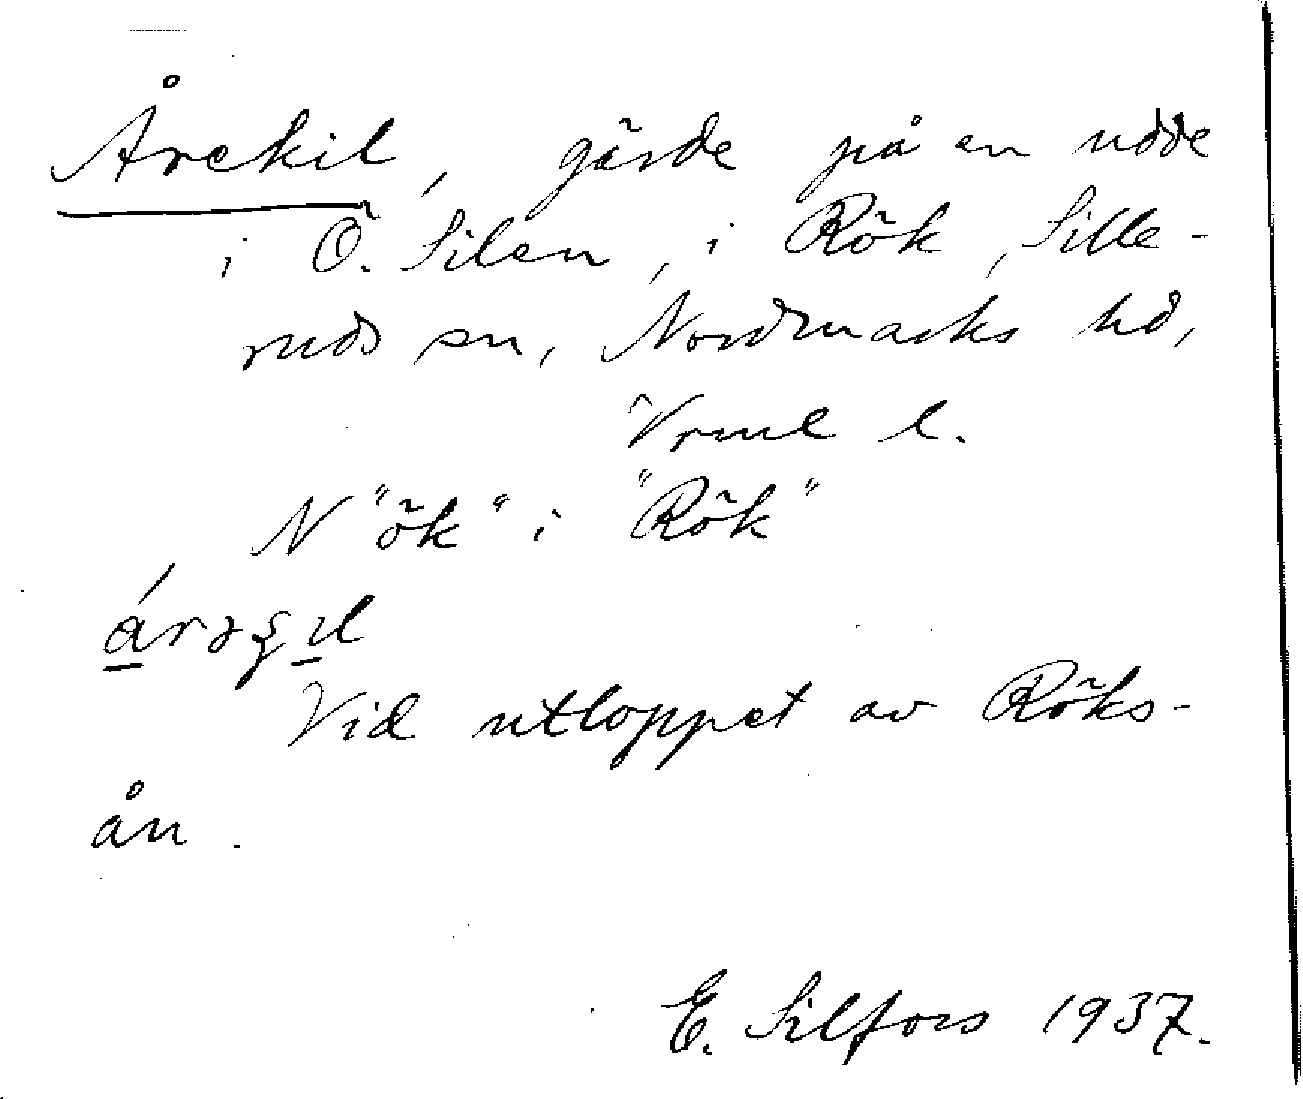 Årekil, gärde på en udde
i Ö. Silen, i Rök, Sille-
ruds sn, Nordmarks hd,
Vrml l.
N "ök" i "Rök"
Vid utloppet av Röks-
ån.
E. Silfors 1937.